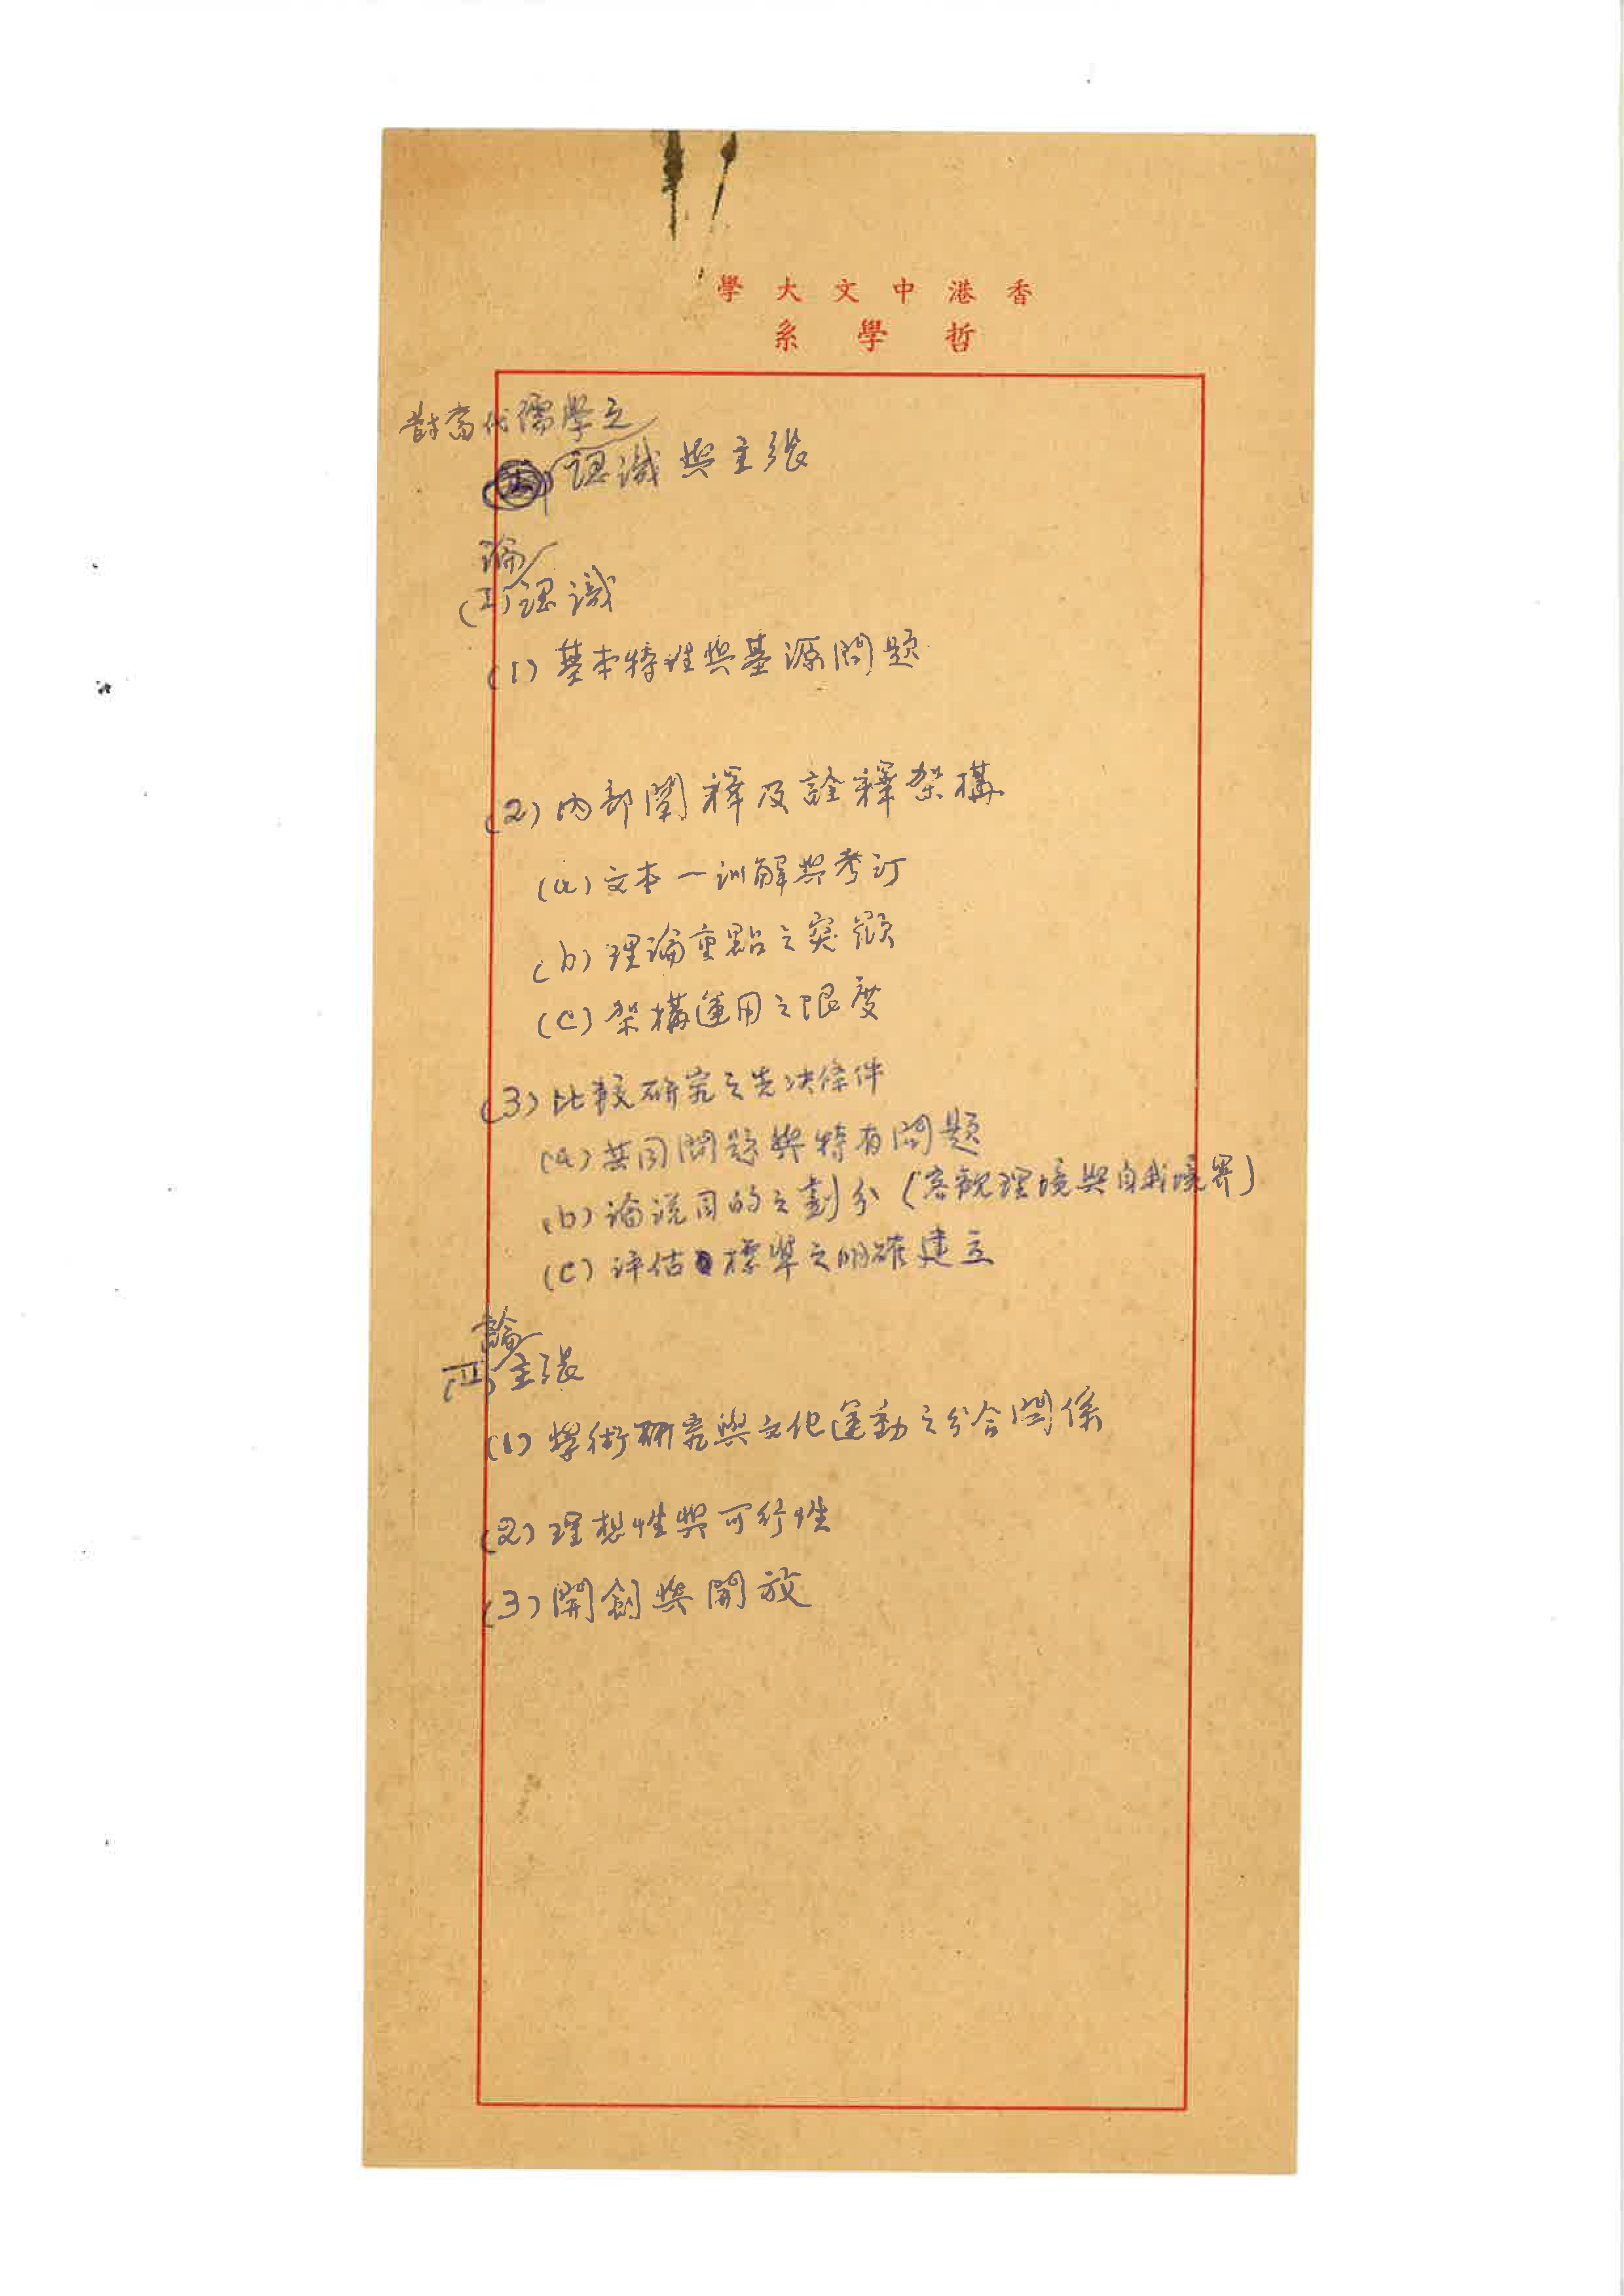 香港中文大學
哲學系
對當代儒學之
認識與主張
論
(I)認識
(1)基本特性與基源問題
(2)內部闡釋及詮釋架構
(a)文本—訓解與考訂
(b)理論重點之突顯
(c)架構運用之限度
(3)比較研究之先決條件
(a)共同問題與特有問題
(b)論說目的之劃分(客觀理境與自我境界)
(c)評估標準之明確建立
論
(II)主張
(1)學術研究與文化運動之分合關係
(2)理想性與可行性
(3)開創與開放